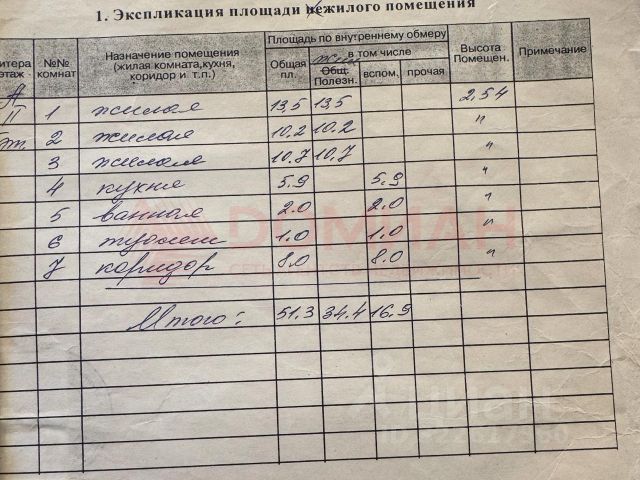 1. Экспликация площади нежилого помещения
итера этаж. №№ комнат Назначение помещения (жилая комната,кухня, коридор и т.п.) Площадь по внутреннему обмеру Высота Помещен. Примечание
Общая пл. в том числе
жил. Общ. Полезн. вспом. прочая
А 1 жилая 13,5 13,5 2,54
II
эт. 2 жилая 10.2 10.2 "
3 жилая 10.7 10.7 "
4 кухня 5.9 5.9 "
5 ванная 2.0 2.0 "
6 туалет 1.0 1.0 "
7 коридор 8.0 8.0 "
Итого: 51.3 34.4 16.9